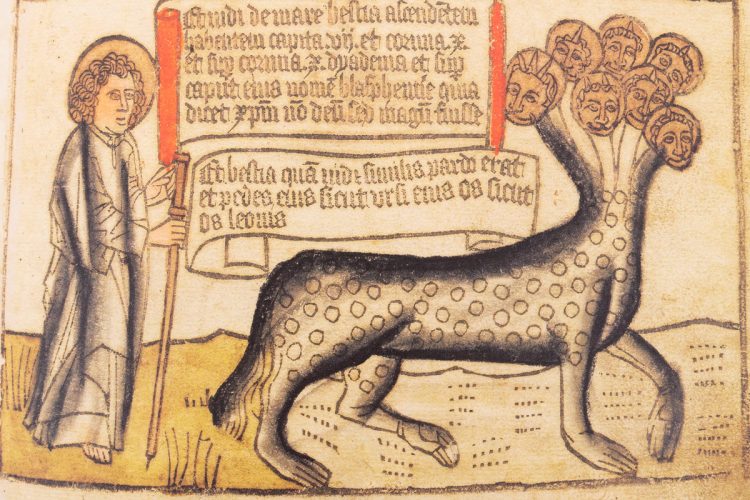 Et vidi de mare bestia ascendētem
habentem capita vij et cornua x
et sup cornua x dyadema et sup
capita eius nomē blasphemie quia
dicet xpm nō deū sed magū fuisse
Et bestia quā vidi similis pardo erat
et pedes eius sicut ursi eius os sicut
os leonis